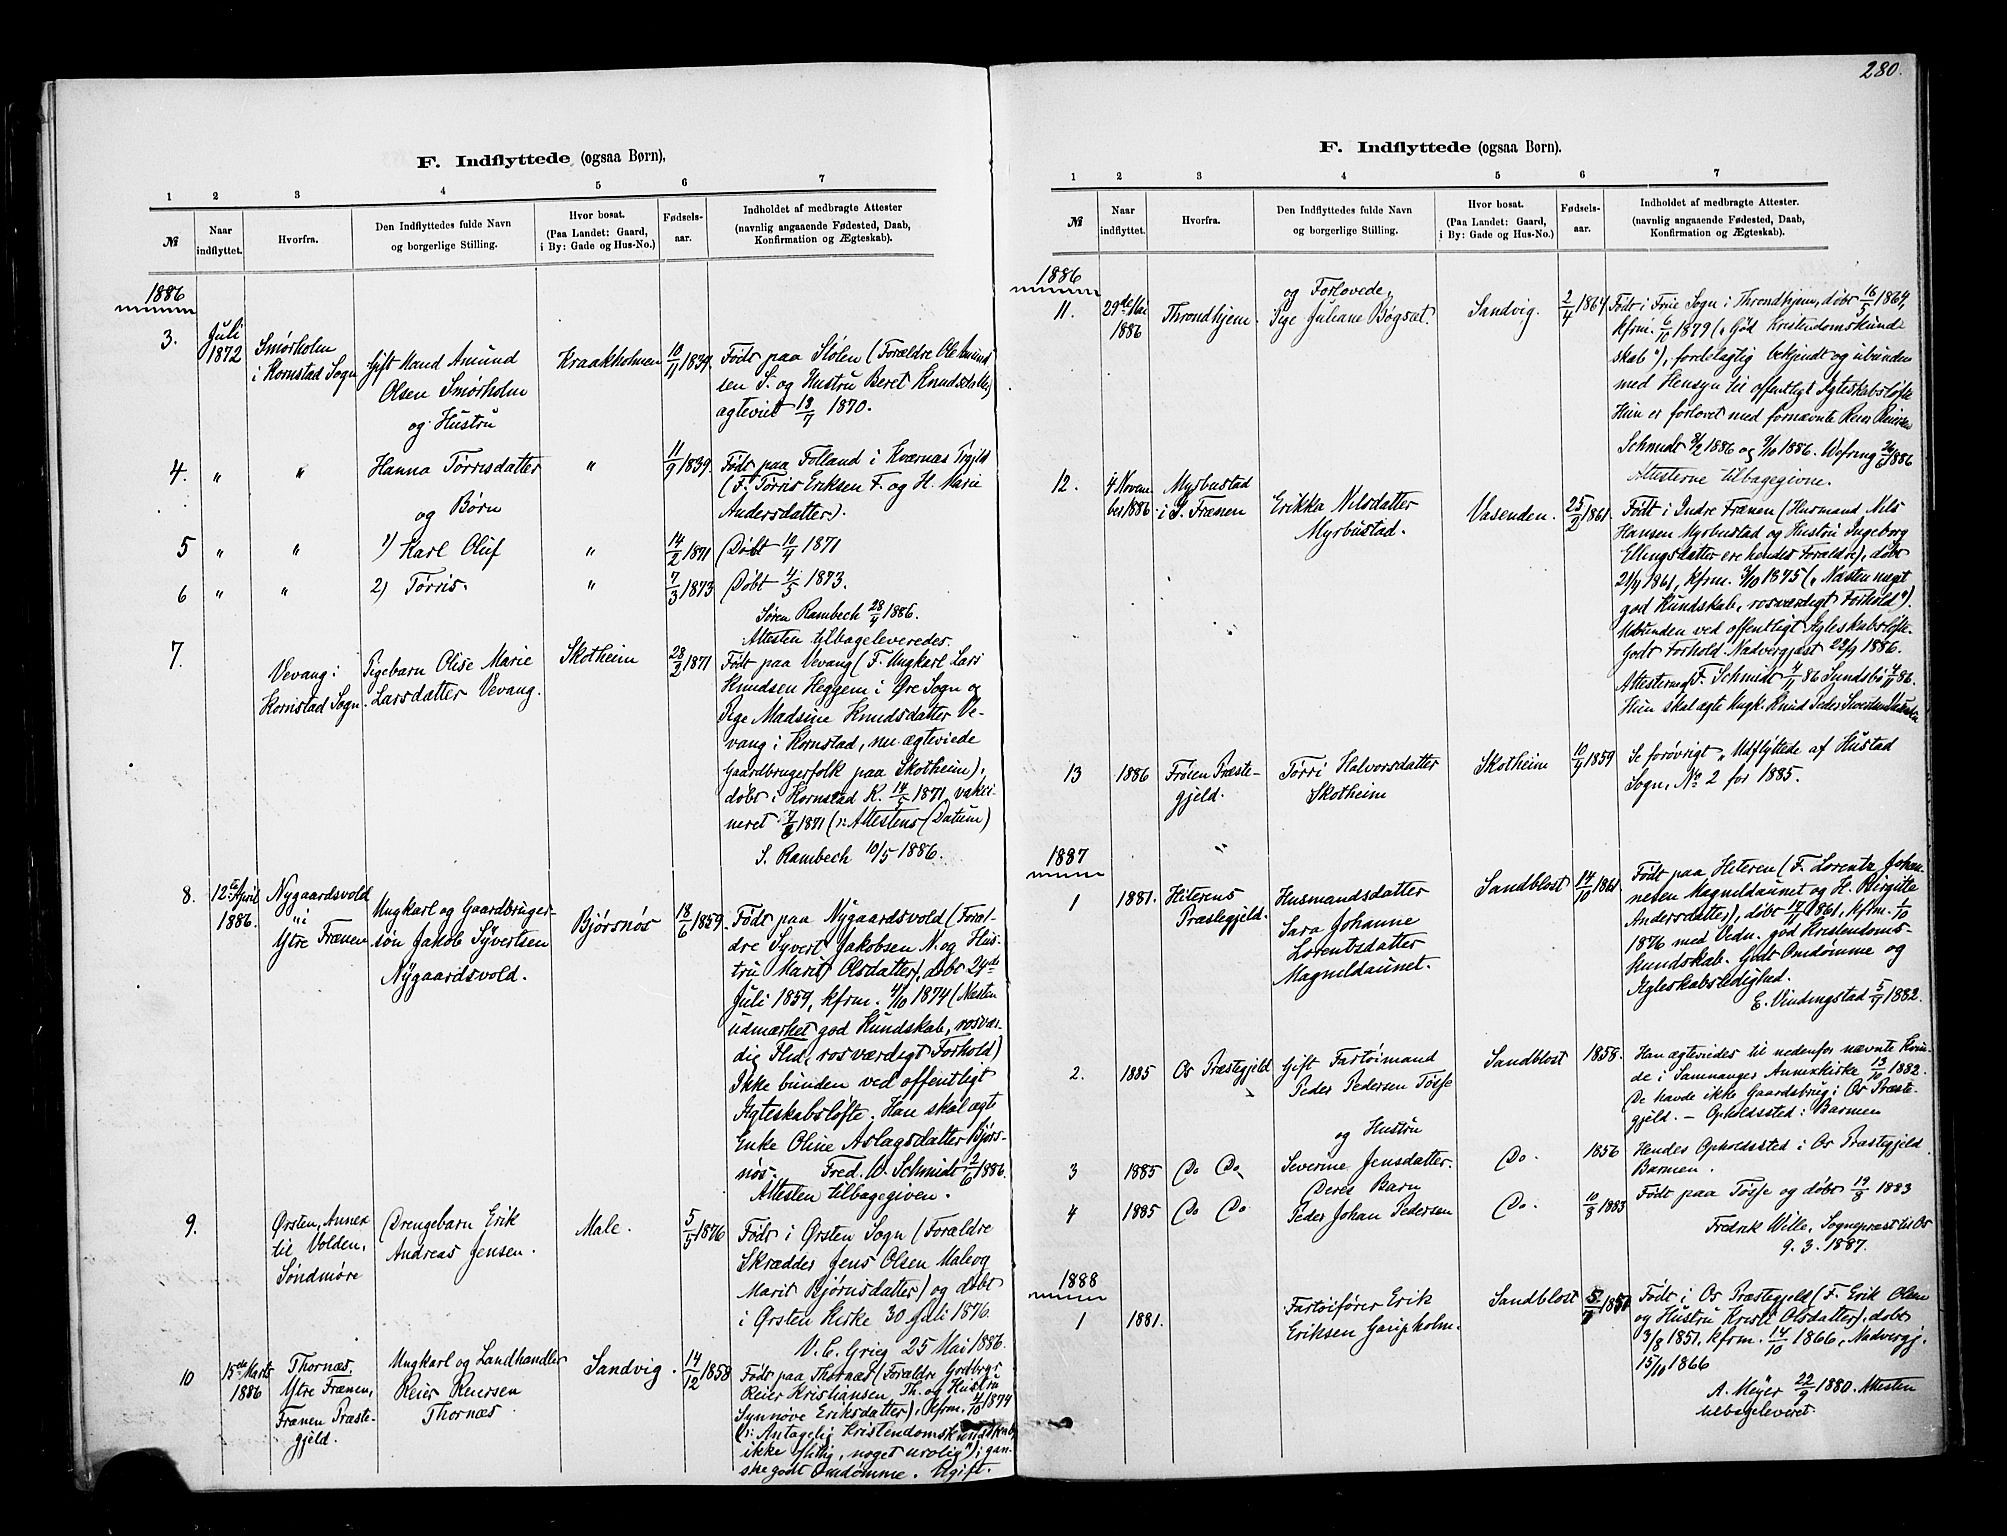 F. Indflyttede (ogsaa Børn),
1 2 3 4 5 6 7
№ Naar indflyttet. Hvorfra. Den Indflyttedes fulde Navn og borgerlige Stilling. Hvor bosat. (Paa Landet: Gaard, i By: Gade og Hus-No.) Fødsels-aar. Indholdet af medbragte Attester (navnlig angaaende Fødested, Daab, Konfirmation og Ægteskab).
1886
3. Juli 1872 Smørholm i Kornstad Sogn Gift Mand Amund Kraakholmen 10/11 1839. Født paa Stølen (Forældre Ole
Olsen Smørholm sen S. og Hustru Beret
og Hustru ægteviet 18/7 1870.
4. " " Hanna Tørrisdatter " 11/9 1839. Født paa Folland i Kværnæs Prgjld
(F. Tørris Eriksen F. og H. Marie
og Børn Andersdatter).
5 " " 1) Karl Oluf " 14/2 1871 Døbt 10/4 1871
6 " " 2) Tørris. " 7/3 1873 Døbt 4/5 1873.
Søren Rambech 28/4 1886.
Attesten tilbageleveredes.
7. Vevang i Kornstad Sogn. Pigebarn Olise Marie Skotheim 28/2 1871 Født paa Vevang (F. Ungkarl Lars
Larsdatter Vevang. Knudsen Heggem i Øre Sogn og
Pige Madsine Knudsdatter Ve-
vang i Kornstad, nu ægteviede
Gaardbrugerfolk paa Skotheim),
døbt i Kornstad K. 14/5 1871, vakci-
neret 7/8 1871 (ɔ: Attestens Datum)
S. Rambech 10/5 1886.
8. 12te April 1886. Nygaardsvold i Ytre Frænen Ungkarl og Gaardbruger- Bjørsnøs 18/6 1859. Født paa Nygaardsvold (Foræl-
søn Jakob Syvertsen dre Syvert Jakobsen N. og Hus-
Nygaardsvold. tru Marit Olsdatter), døbt 24de
Juli 1859, kfrm. 4/10 1874 (Næsten
udmærket god Kundskab, rosvær-
dig Flid, rosværdigt Forhold)
Ikke bunden ved offentligt
Ægteskabsløfte. Han skal ægte
Enke Oline Aslagsdatter Bjørs-
nøs. Fred. W. Schmidt 2/6 1886.
Attesten tilbagegiven.
9. Ørsten, Annex til Volden, Søndmøre Drengebarn Erik Male. 5/5 1876 Født i Ørsten Sogn (Forældre
Andreas Jensen. Skrædder Jens Olsen Male og
Marit Bjørnsdatter) og døbt
i Ørsten Kirke 30 Juli 1876.
V. C. Grieg 25 Mai 1886.
10 15de Marts 1886 Thornæs Ytre Frænen, Frænen Præste-gjeld. Ungkarl og Landhandler Sandvig. 14/12 1858 Født paa Thornæs (Forældre Grdbrgr
Reier Reiersen Reier Kristiansen Th. og Hustru
Thornæs Synnøve Eriksdatter). Kfrm. 4/10 1874
(ɔ: Antagelig Kristendomskundskab,
ikke flittig, noget urolig"); gan-
ske godt Omdømme. Ugift.
280.
F. Indflyttede (ogsaa Børn).
1 2 3 4 5 6 7
№ Naar indflyttet. Hvorfra. Den Indflyttedes fulde Navn og borgerlige Stilling. Hvor bosat. (Paa Landet: Gaard, i By: Gade og Hus-No.) Fødsels-aar. Indholdet af medbragte Attester. (navnlig angaaende Fødested, Daab, Konfirmation og Ægteskab).
1886
og Forlovede,
11. 29de Mai 1886 Throndhjem. Pige Juliane Bogsæt. Sandvig. 2/4 1864 Født i Frue Sogn i Throndhjem, døbt 16/5 1864,
kfrm. 6/10 1879 („God Kristendomskund-
skab"), fordelagtig bekjendt og ubunden
med Hensyn til offentligt Ægteskabsløfte
Hun er forlovet med fornævnte Reier Reiersen
Schmidt 9/2 1886 og 9/10 1886. 1886
Attesterne tilbagegivne.
12. 4 Novem-ber 1886. Myrbustad i I. Frænen Erikka Nilsdatter Vasenden. 25/2 1861. Født i Indre Frænen (Husmand Nils
Myrbustad. Hansen Myrbustad og Hustru Ingeborg
Ellingsdatter ere hendes Forældre), døbt
21/4 1861, kfrm. 3/10 1875 („Næsten meget
god Kundskab, rosværdigt Forhold").
Ubunden ved offentligt Ægteskabsløfte.
Godt Forhold. Nadvergjæst 22/9 1886.
Attesterne F. Schmidt 4/11 86 Sundsbø 4/11 86.
Hun skal ægte Ungk. Knud Peder Sivertsen
13 1886 Frøien Præste-gjeld. Tørri Halvorsdatter Skotheim 10/9 1859 Se forøvrigt „Udflyttede af Hustad
Skotheim Sogn, No 2 for 1885.
"
1887
1 1881. Hiterens Præstegjeld. Husmandsdatter Sandblost 14/10 1861 Født paa Hiteren (F. Lorentz Johan-
Sara Johanne nesen Magneldaunet og H. Birgitte
Lorentsdatter Andersdatter), døbt 17/11 1861, kfrm. 1/10
Magneldaunet. 1876 med Vedn. god Kristendoms-
kundskab. Godt Omdømme og
Ægteskabsledighed.
E. Vindingstad 5/9 1882.
2. 1885 Os Præstegjeld Gift Fartøimand Sandblost 1858. Han ægteviedes til nedenfor nævnte Kvin-
Peder Pedersen Tøsse de i Samnanger Annexkirke 13/10 1882.
De havde ikke Gaardsbrug i Os Præste-
gjeld. – Opholdssted: Barmen
og Hustru
3 1885 Do Do Severine Jensdatter. Do. 1856 Hendes Opholdssted i Os Præstegjeld
Deres Barn Barmen.
4 1885 Do Do Peder Johan Pedersen Do. 10/8 1883 Født paa Tøsse og døbt 19/8 1883
Fredrik Wille, Sognepræst til Os
9. 3. 1887.
1888
1 1881. Fartøifører Erik Sandblost 1851 Født i Os Præstegjeld (F. Erik Olsen
Eriksen Garipholm. og Hustru Kristi Olsdatter), døbt
3/8 1851, kfrm. 14/10 1866, Nadvergj.
15/10 1866
A. Meyer 22/9 1880. Attesten
tilbageleveret.